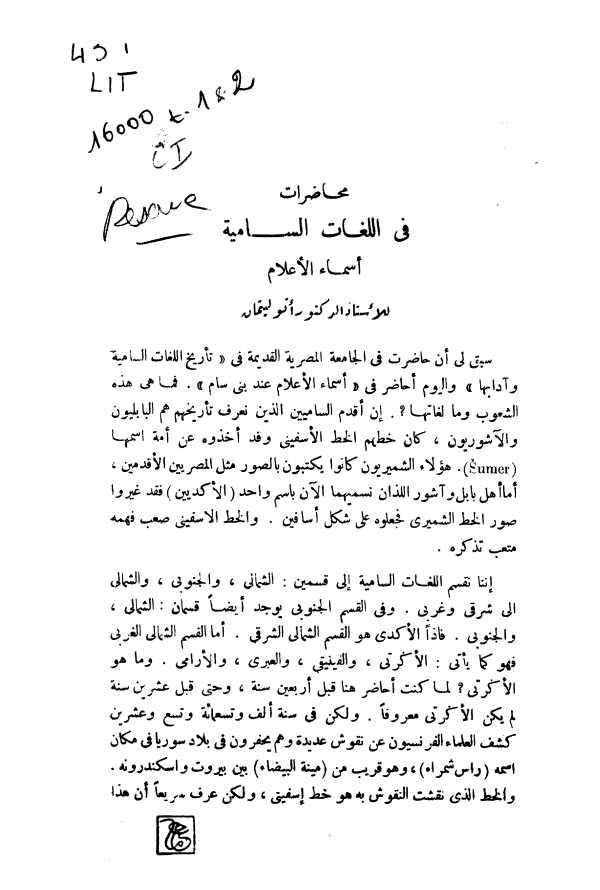 491
LIT
16000 t. 1 & 2
محاضرات
فى اللغات السامية
أسماء الأعلام
للأستاذ الدكتور أنو ليتمان
سبق لى أن حاضرت فى الجامعة المصرية القديمة فى « تأريخ اللغات السامية
وآدابها » واليوم أحاضر فى « أسماء الأعلام عند بنى سام » . فما هى هذه
الشعوب وما لغاتها ? . إن أقدم الساميين الذين نعرف تأريخهم هم البابليون
والآشوريون ، كان خطهم الخط الأسفينى وقد أخذوه عن أمة اسمها
(Šumer). هؤلاء الشميريون كانوا يكتبون بالصور مثل المصريين الأقدمين ،
أما أهل بابل وآشور اللذان نسميهما الآن باسم واحد (الأكديين) فقد غيروا
صور الخط الشميرى فجعلوه على شكل أسافين . والخط الاسفينى صعب فهمه
متعب تذكره .
إننا نقسم اللغات السامية إلى قسمين : الشمالى ، والجنوبى ، والشمالى
الى شرقى وغربى . وفى القسم الجنوبى يوجد أيضاً قسمان : الشمالى ،
والجنوبى . فاذاً الأكدى هو القسم الشمالى الشرقى . أما القسم الشمالى الغربى
فهو كما يأتى : الأكرتى ، والفينيقى ، والعبرى ، والأرامى . وما هو
الأكرتى ? لما كنت أحاضر هنا قبل أربعين سنة ، وحتى قبل عشرين سنة
لم يكن الأكرتى معروفاً . ولكن فى سنة ألف وتسعمائة وتسع وعشرين
كشف العلماء الفرنسيون عن نقوش عديدة وهم يحفرون فى بلاد سوريا فى مكان
اسمه (راس شمراه) ، وهو قريب من (مينة البيضاء) بين بيروت واسكندرونه .
والخط الذى نقشت النقوش به هو خط إسفينى ، ولكن عرف سريعاً أن هذا